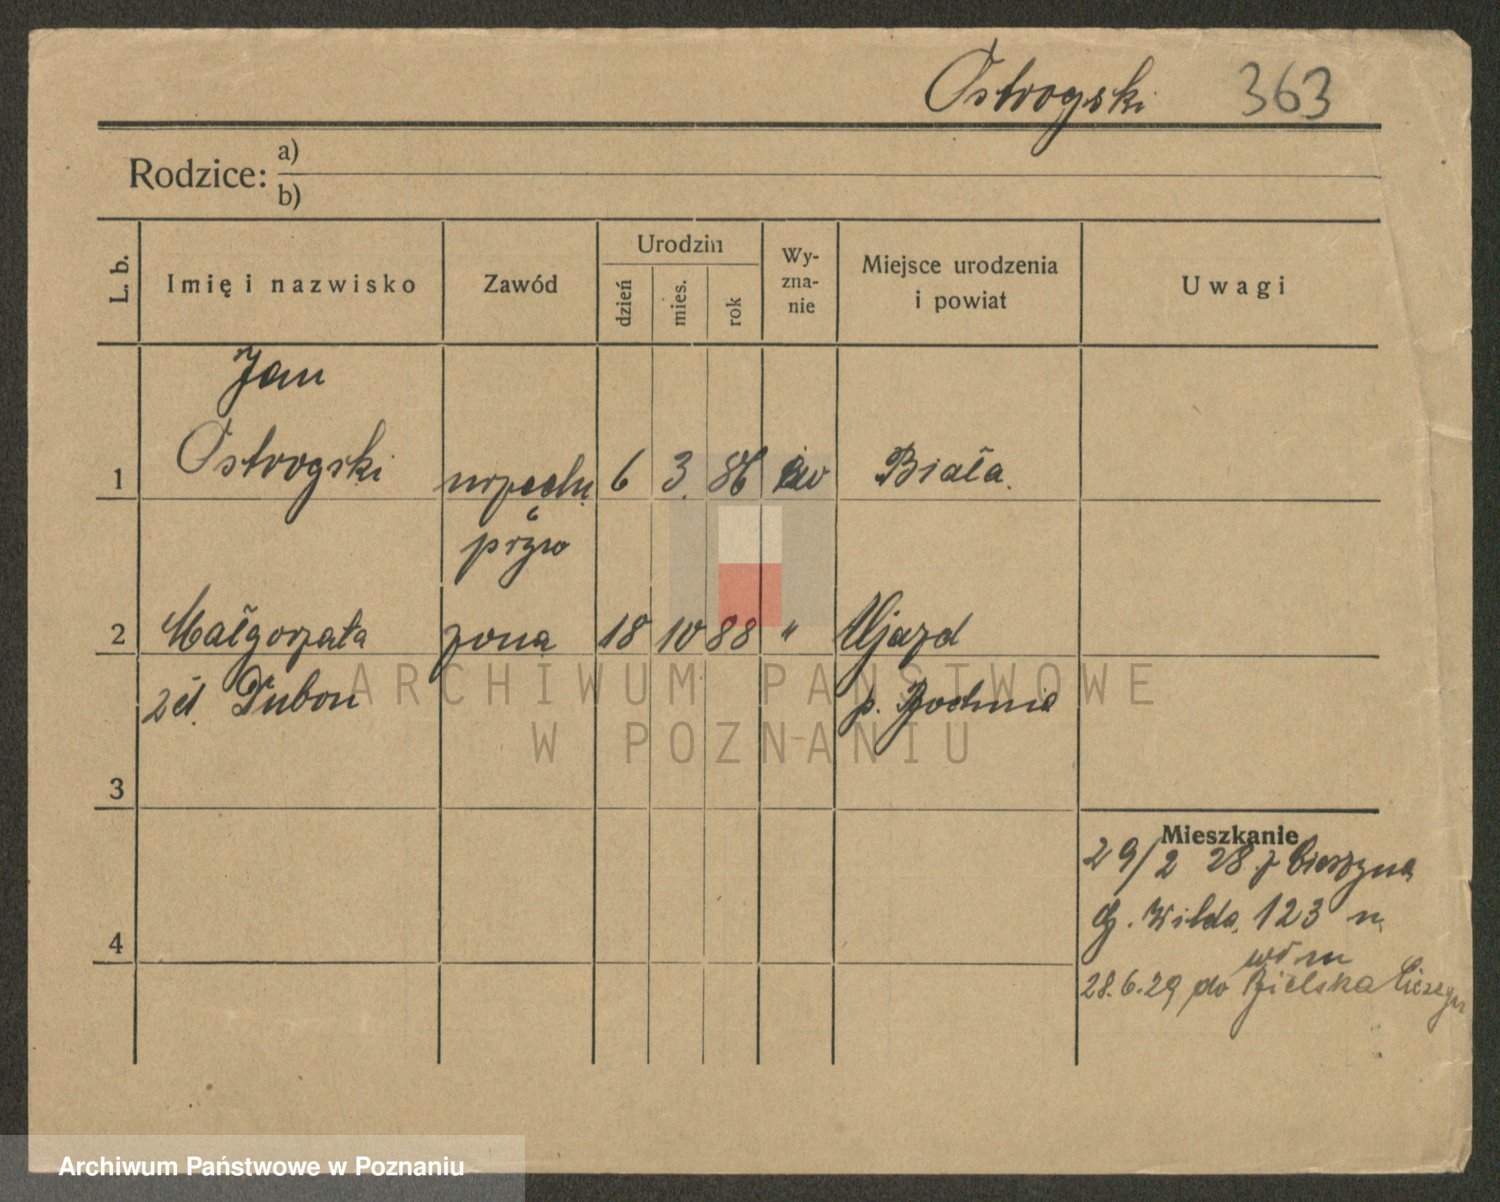 Ostrogski 363
Rodzice: a)
b)
L. b.
Imię i nazwisko
Zawód
Urodzin
dzień
mies.
rok
Wy-
zna-
nie
Miejsce urodzenia
i powiat
Uwagi
Jan
1 Ostrogski 6 3. 86 ew Biała.
pryw
2 Małgorzata żona 18 10 88 " Ujazd
Dubon p. Bochnia
3
4
Mieszkanie
29/2 28 z Cieszyna
G. Wilda, 123
28.6.29 do Bielska
ARCHIWUM PAŃSTWOWE
W POZNANIU
Archiwum Państwowe w Poznaniu